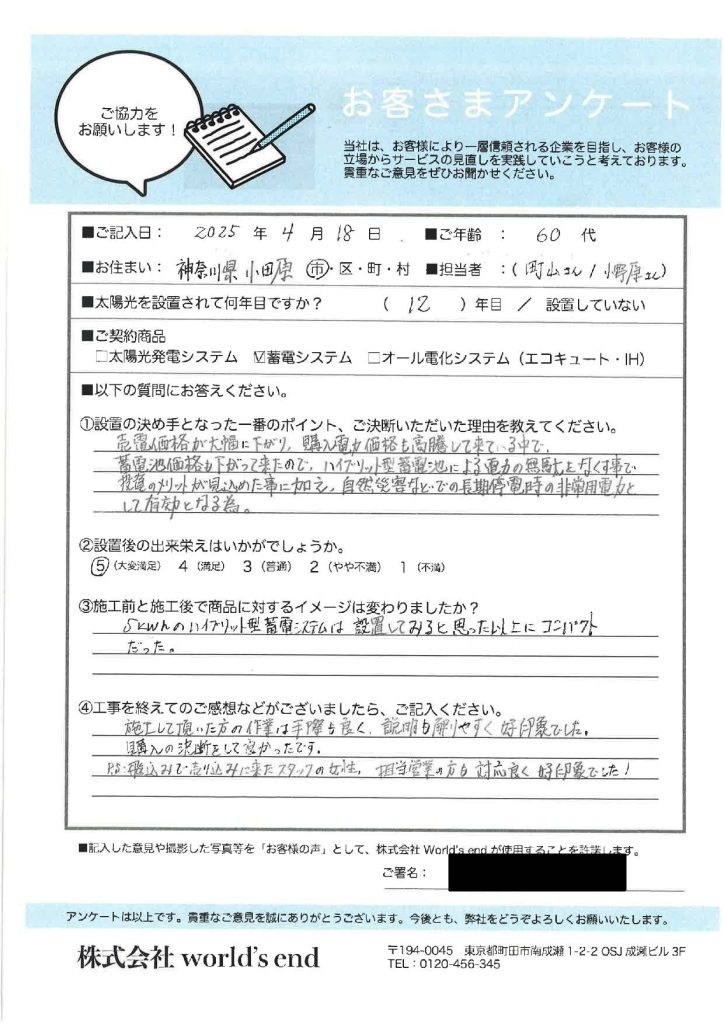 ご協力を
お願いします！
お客さまアンケート
当社は、お客様により一層信頼される企業を目指し、お客様の
立場からサービスの見直しを実践していこうと考えております。
貴重なご意見をぜひお聞かせください。
■ご記入日： 2025 年 4 月 18 日 ■ご年齢 ： 60 代
■お住まい： 神奈川県 小田原 市・区・町・村 ■担当者 ：( 町山さん / 小野原さん)
■太陽光を設置されて何年目ですか？ ( 12 ) 年目 / 設置していない
■ご契約商品
□太陽光発電システム ☑蓄電システム □オール電化システム（エコキュート・IH）
■以下の質問にお答えください。
①設置の決め手となった一番のポイント、ご決断いただいた理由を教えてください。
売電価格が大幅に下がり、購入電力価格も高騰して来ている中で、
蓄電池価格も下がって来たので、ハイブリット型蓄電池による電力の無駄をなくす事で
投資のメリットが見込めた事に加え、自然災害などでの長期停電時の非常用電力と
して有効となる為。
②設置後の出来栄えはいかがでしょうか。
⑤(大変満足) 4 (満足) 3 (普通) 2 (やや不満) 1 (不満)
③施工前と施工後で商品に対するイメージは変わりましたか？
5kwhのハイブリット型蓄電システムは 設置してみると思った以上にコンパクト
だった。
④工事を終えてのご感想などがございましたら、ご記入ください。
施工して頂いた方の作業は手際も良く、説明も解りやすく好印象でした。
購入の決断をして良かったです。
PS:飛込みで売り込みに来たスタッフの女性、担当営業の方も対応良く好印象でした！
■記入した意見や撮影した写真等を「お客様の声」として、株式会社 World's end が使用することを許諾します。
ご署名：
アンケートは以上です。貴重なご意見を誠にありがとうございます。今後とも、弊社をどうぞよろしくお願いいたします。
株式会社 world's end
〒194-0045 東京都町田市南成瀬 1-2-2 OSJ 成瀬ビル 3F
TEL：0120-456-345